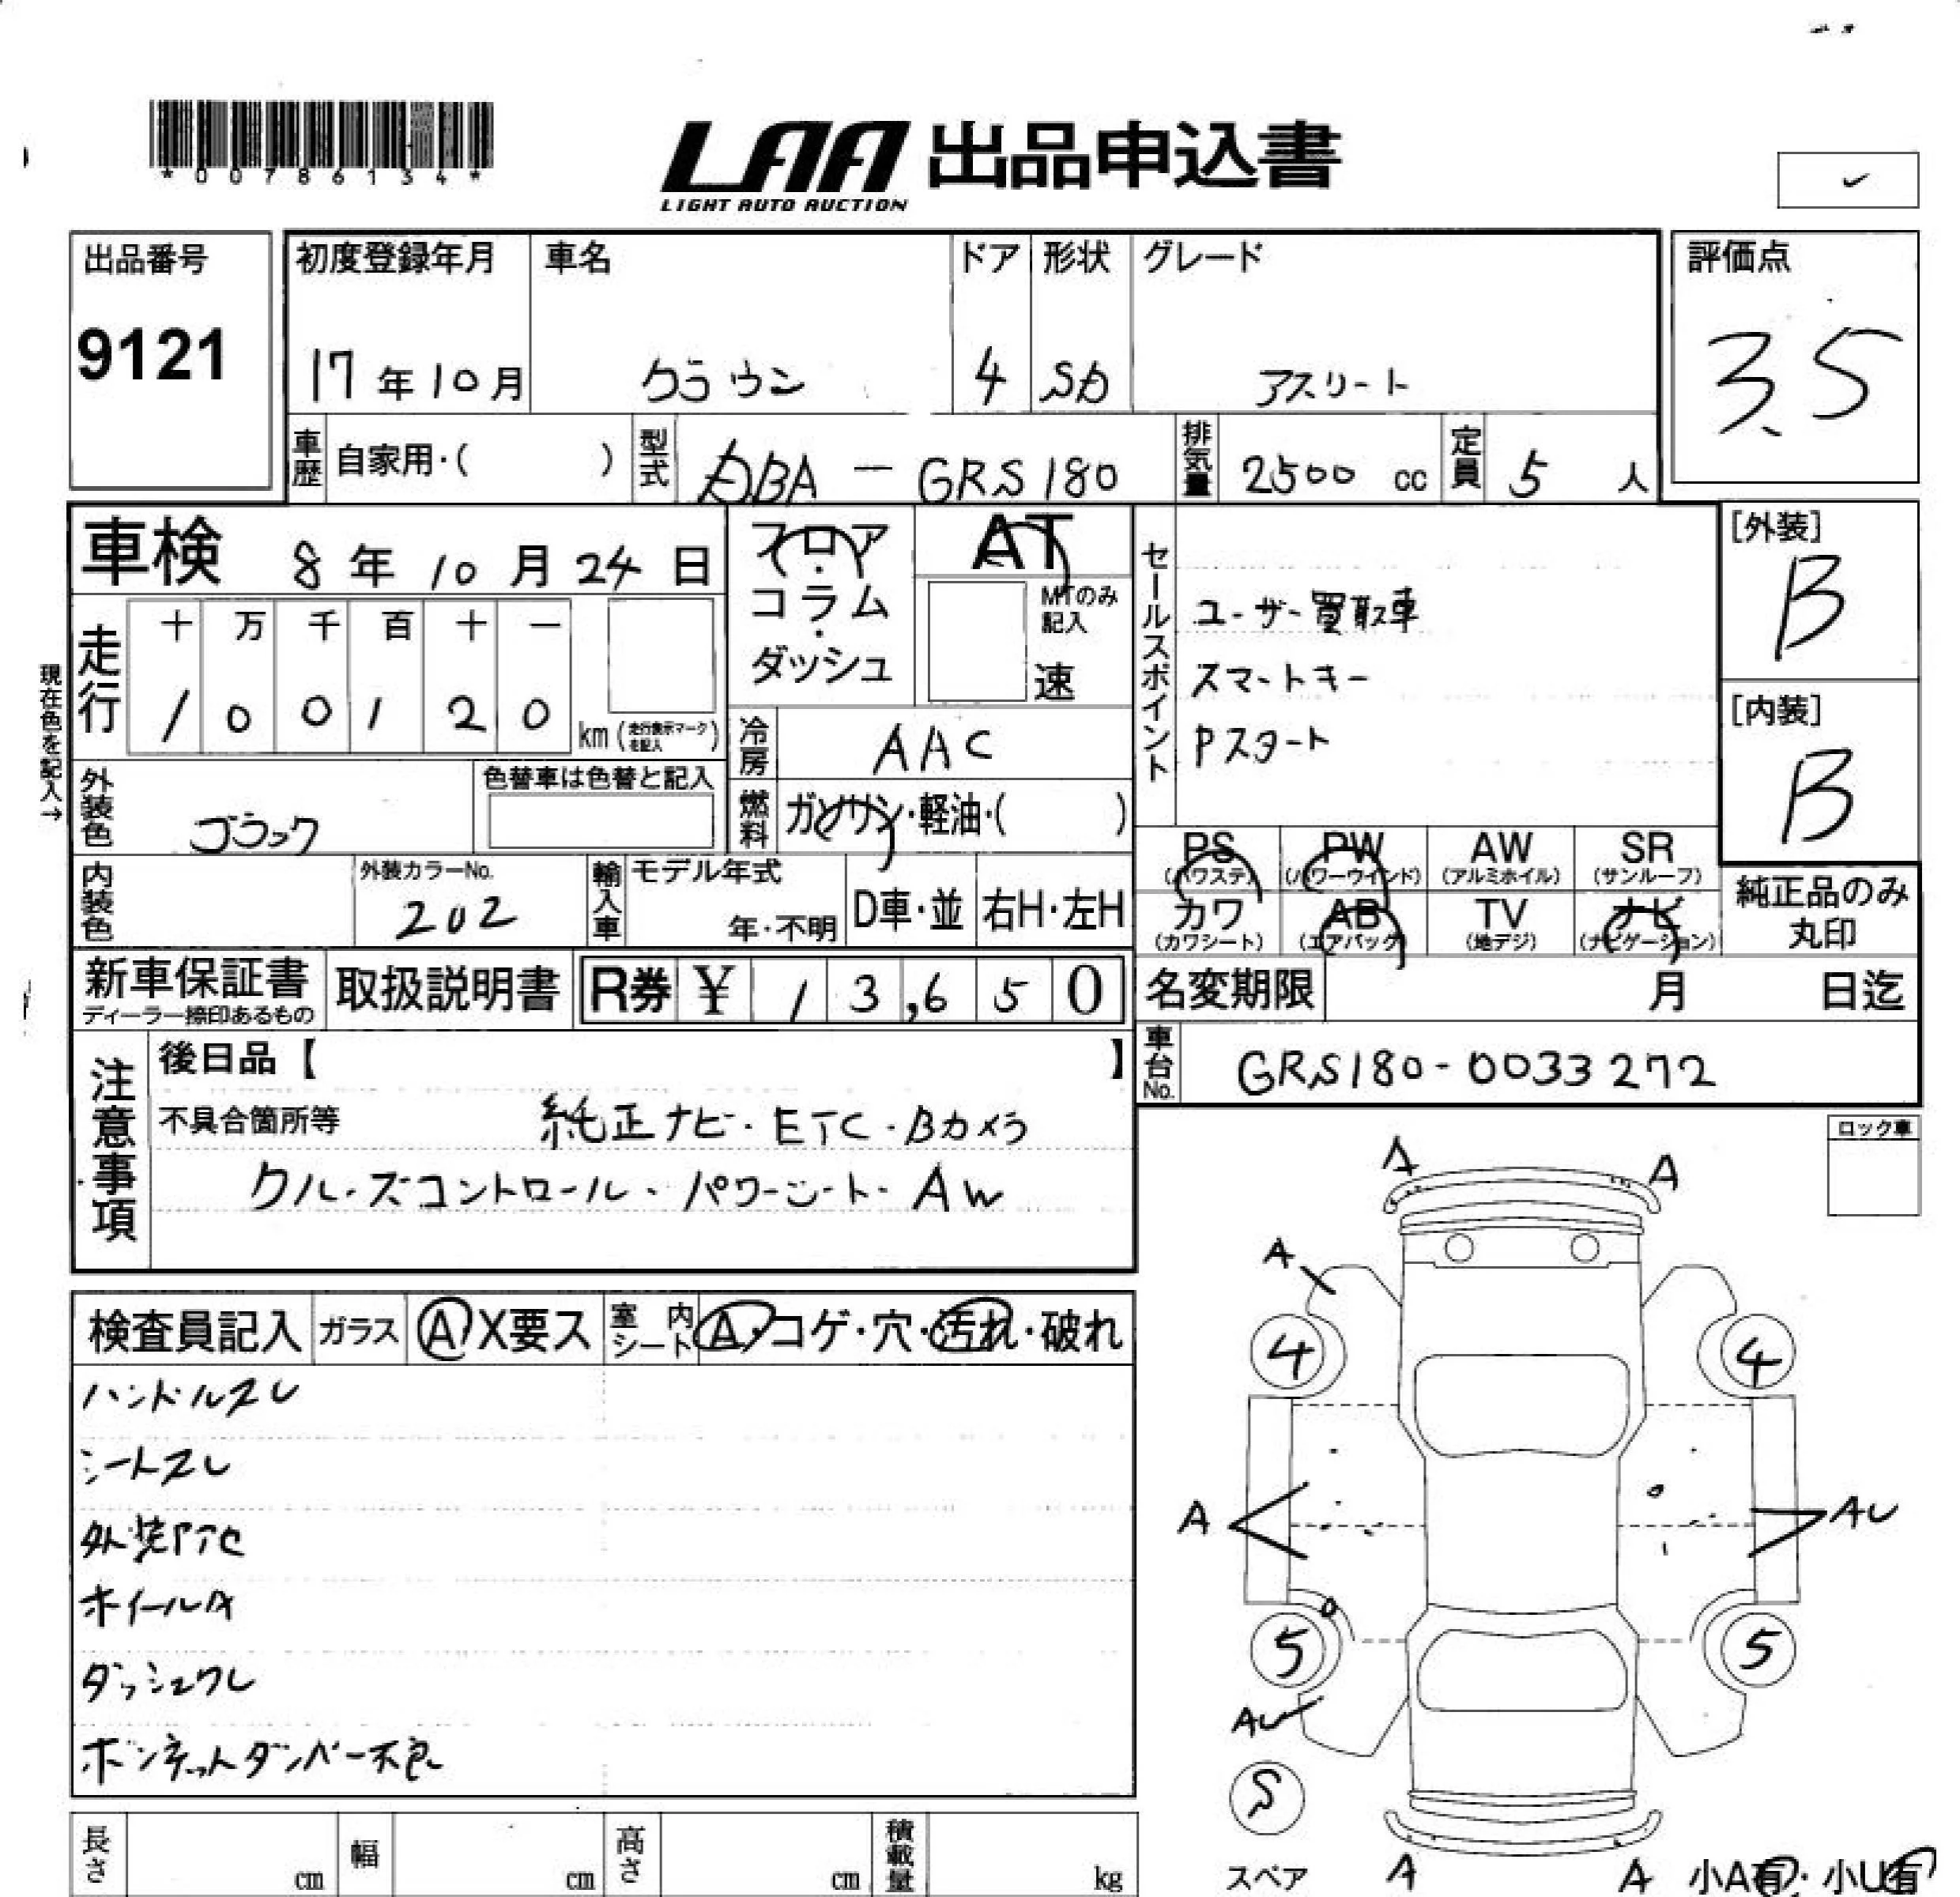 *00786134*
LAA 出品申込書
LIGHT AUTO AUCTION
出品番号
9121
初度登録年月
17年10月
車名
クラウン
ドア
4
形状
SD
グレード
アスリート
評価点
3.5
車歴 自家用・( )
型式 DBA - GRS180
排気量 2500 cc
定員 5 人
車検 8年10月24日
フロア・コラム・ダッシュ
AT
MTのみ記入
速
セールスポイント
ユーザー買取車
スマートキー
Pスタート
[外装]
B
[内装]
B
現在色を記入→
走行
十 万 千 百 十 一
1 0 0 1 2 0 km (走行表示マークを記入)
冷房 AAC
燃料 ガソリン・軽油・( )
外装色 ブラック
色替車は色替と記入
内装色
外装カラーNo.
202
輸入車
モデル年式
年・不明
D車・並
右H・左H
PS (パワステ)
PW (パワーウインド)
AW (アルミホイル)
SR (サンルーフ)
カワ (カワシート)
AB (エアバッグ)
TV (地デジ)
ナビ (ナビゲーション)
純正品のみ
丸印
新車保証書
ディーラー捺印あるもの
取扱説明書
R券 ¥ 13,650
名変期限 月 日迄
車台No. GRS180-0033272
注意事項
後日品【 】
不具合箇所等
純正ナビ・ETC・Bカメラ
クルーズコントロール・パワーシート・AW
ロック車
検査員記入
ガラス
A X要ス
室内シート
A・コゲ・穴・汚れ・破れ
ハンドルスレ
シートスレ
ホイールA
ダッシュワレ
ボンネットダンパー不良
A A
A
4 4
A AU
5 5
AU
S
スペア
A A
小A有・小U有
長さ cm
幅 cm
高さ cm
積載量 kg